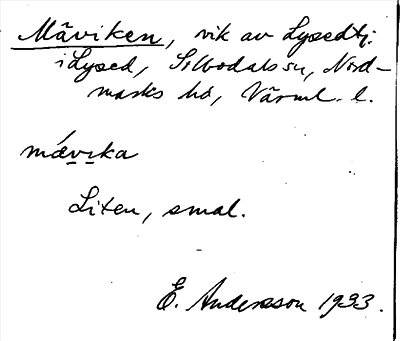 Måviken, vik av Lysedtj.
i Lysed, Silbodals sn, Nord-
marks hd, Värml. l.
mǽvika
Liten, smal.
E. Andersson 1933.